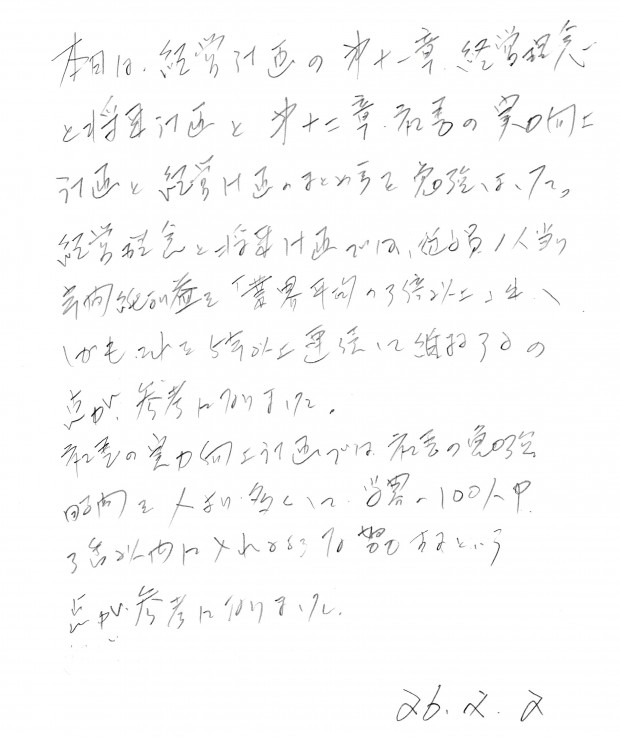 本日は、経営計画の第十一章、経営理念
と将来計画と第十二章、社長の実力向上
計画と経営計画のまとめ方を勉強しました。
経営理念と将来計画では、従業員1人当り
年間純利益を「業界平均の3倍以上」とし、
しかも、これを5年以上連続して維持する
点が、参考になりました。
社長の実力向上計画では、社長の勉強
時間を人より多くして、業界で100人中
3番以内に入れるよう努力するという
点が、参考になりました。
26.2.2